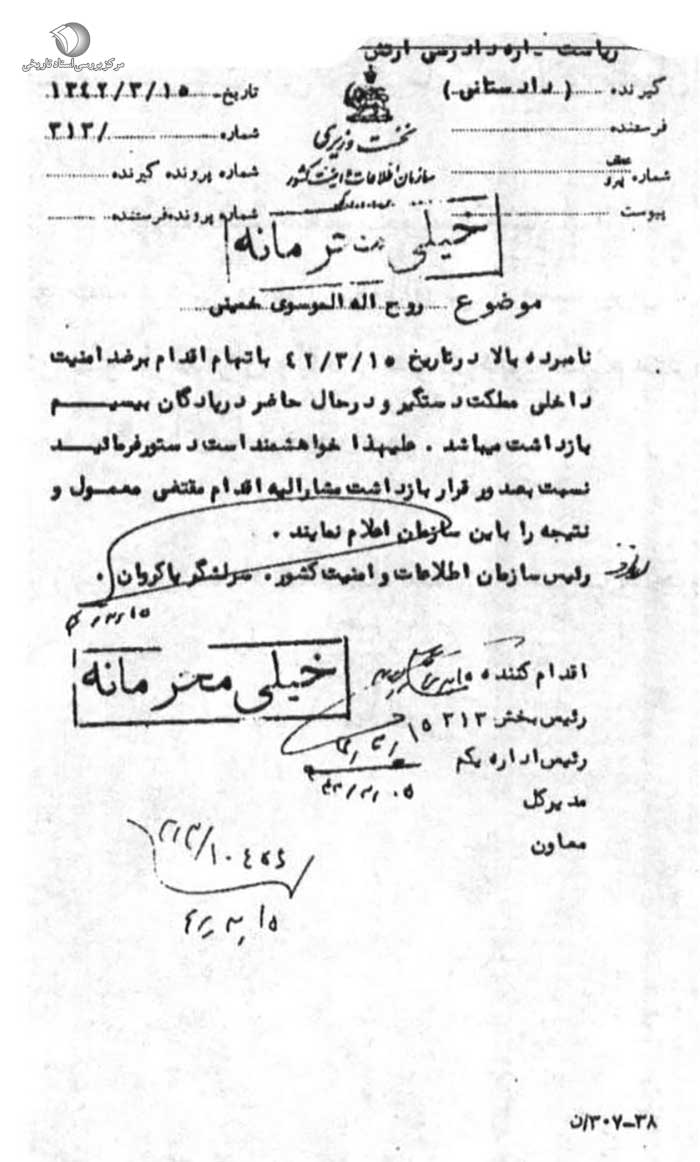 مرکز بررسی اسناد تاریخی
ریاست - اره دادرسی ارتش
گیرنده (دادستانی)
فرستنده
شماره عطف پیرو
پیوست
نخست وزیری
سازمان اطلاعات و امنیت کشور
تاریخ ۱۳۴۲/۳/۱۵
شماره /۳۱۳
شماره پرونده گیرنده
شماره پرونده فرستنده
خیلی محرمانه
موضوع روح اله الموسوی خمینی
نامبرده بالا درتاریخ ۴۲/۳/۱۵ باتهام اقدام برضد امنیت
داخلی مملکت دستگیر و درحال حاضر درپادگان بیسیم
بازداشت میباشد . علیهذا خواهشمند است دستورفرمائید
نسبت بصدور قرار بازداشت مشارالیه اقدام مقتضی معمول و
نتیجه را باین سازمان اعلام نمایند .
رئیس سازمان اطلاعات و امنیت کشور . سرلشگر پاکروان .
خیلی محرمانه
اقدام کننده
رئیس بخش ۳۱۳
رئیس اداره یکم
مدیرکل
معاون
۱۵
۳۸-۳۰۷/ن